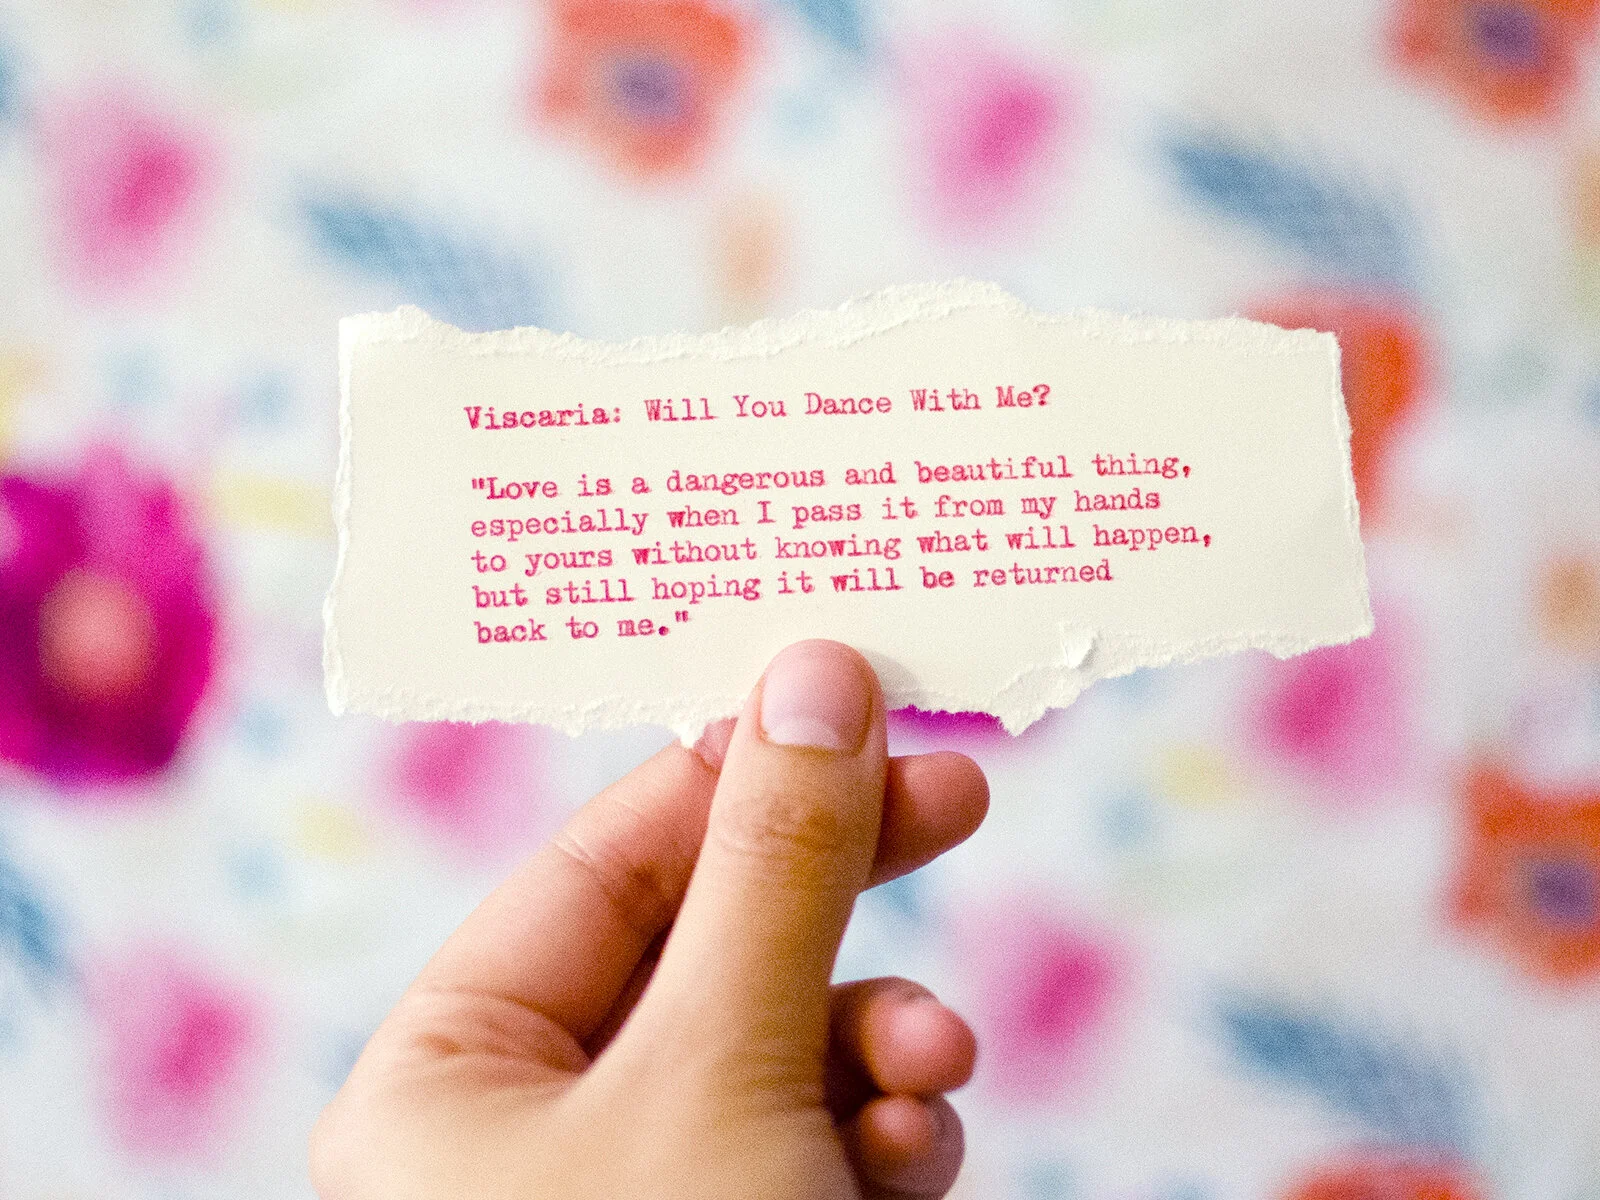 Viscaria: Will You Dance With Me?
"Love is a dangerous and beautiful thing,
especially when I pass it from my hands
to yours without knowing what will happen,
but still hoping it will be returned
back to me."